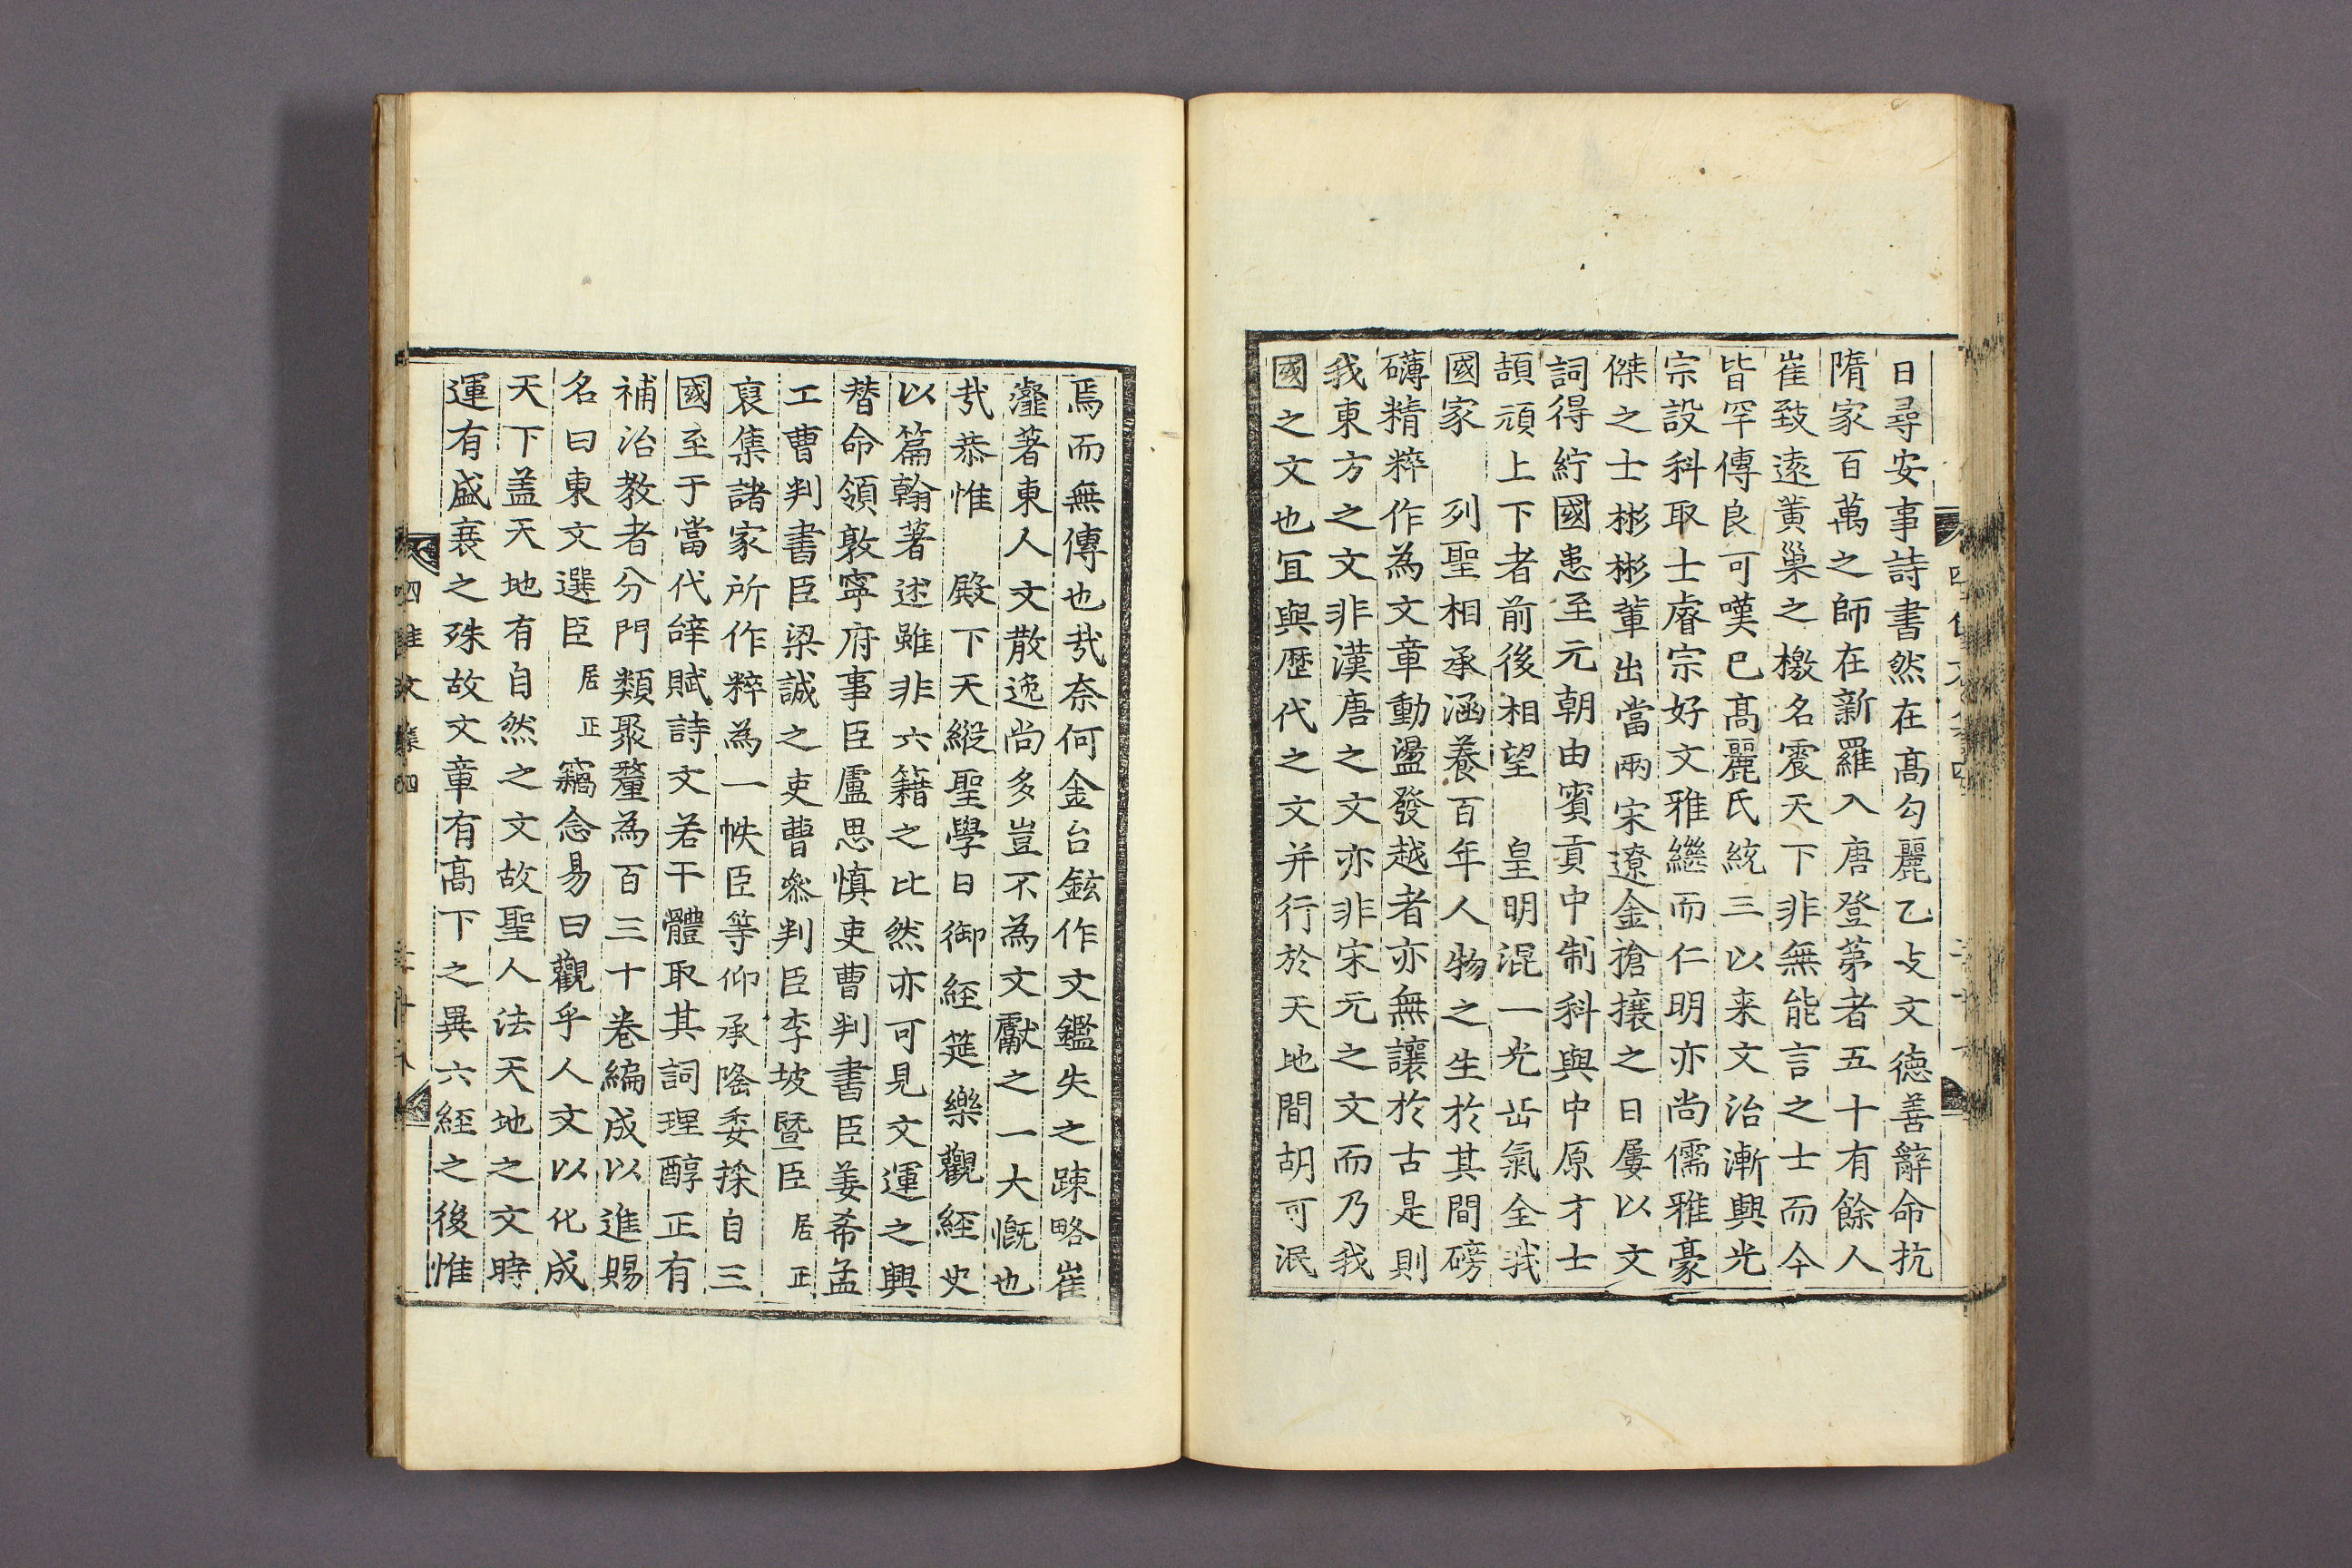 日尋安事詩書然在高勾麗乙支文德善辭命抗
隋家百萬之師在新羅入唐登第者五十有餘人
崔致遠黃巢之檄名震天下非無能言之士而今
皆罕傳良可嘆已高麗氏統三以来文治漸興光
宗設科取士睿宗好文雅繼而仁明亦尚儒雅豪
傑之士彬彬輩出當兩宋遼金搶攘之日屢以文
詞得紓國患至元朝由賓貢中制科與中原才士
頡頏上下者前後相望 皇明混一光岳氣全我
國家 列聖相承涵養百年人物之生於其間磅
礴精粹作為文章動盪發越者亦無讓於古是則
我東方之文非漢唐之文亦非宋元之文而乃我
國之文也冝與歷代之文并行於天地間胡可泯
焉而無傳也㢤柰何金台鉉作文鑑失之踈略崔
瀣著東人文散逸尚多豈不為文獻之一大慨也
㢤恭惟 殿下天縱聖學日御經筵樂觀經史
以篇翰著述雖非六籍之比然亦可見文運之興
替命領敦寧府事臣盧思慎吏曹判書臣姜希孟
工曹判書臣梁誠之吏曹叅判臣李坡曁臣居正
裒集諸家所作粹為一帙臣等仰承隆委採自三
國至于當代辭賦詩文若干體取其詞理醇正有
補治教者分門類聚釐為百三十卷編成以進賜
名曰東文選臣居正竊念易曰觀乎人文以化成
天下盖天地有自然之文故聖人法天地之文時
運有盛衰之殊故文章有高下之異六經之後惟
四佳文集四